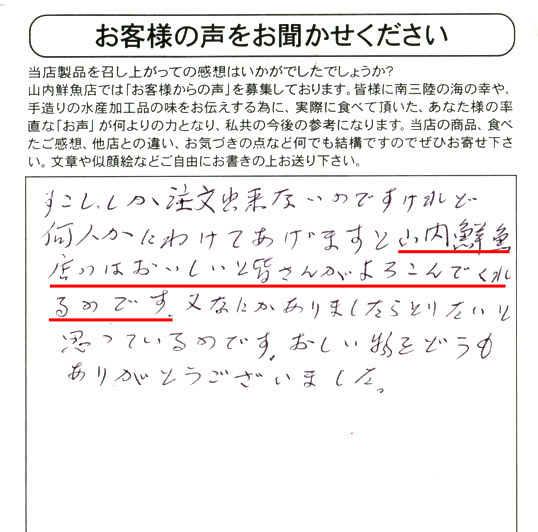 お客様の声をお聞かせください
当店製品を召し上がっての感想はいかがでしたでしょうか?
山内鮮魚店では「お客様からの声」を募集しております。皆様に南三陸の海の幸や、
手造りの水産加工品の味をお伝えする為に、実際に食べて頂いた、あなた様の率
直な「お声」が何よりの力となり、私共の今後の参考になります。当店の商品、食べ
たご感想、他店との違い、お気づきの点など何でも結構ですのでぜひお寄せ下さ
い。文章や似顔絵などご自由にお書きの上お送り下さい。
すこししか注文出来ないのですけれど
何人かにわけてあげますと山内鮮魚
店のはおいしいと皆さんがよろこんでくれ
るのです。又なにかありましたらとりたいと
思っているのです。おしい物をどうも
ありがとうございました。